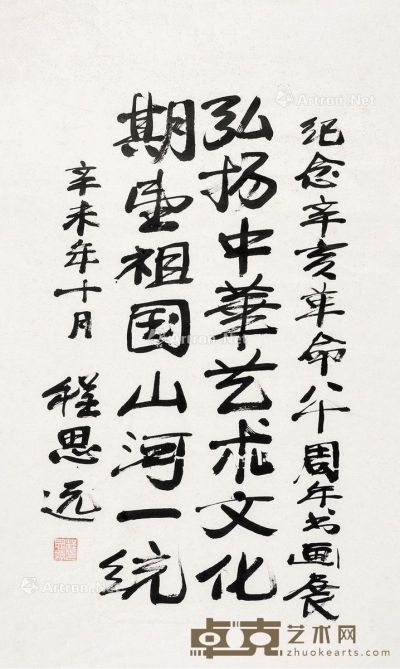 纪念辛亥革命八十周年书画展
弘扬中華艺术文化
期望祖国山河一统
辛未年十月
程思远
Artron.Net
卓克艺术网
zhuokearts.com